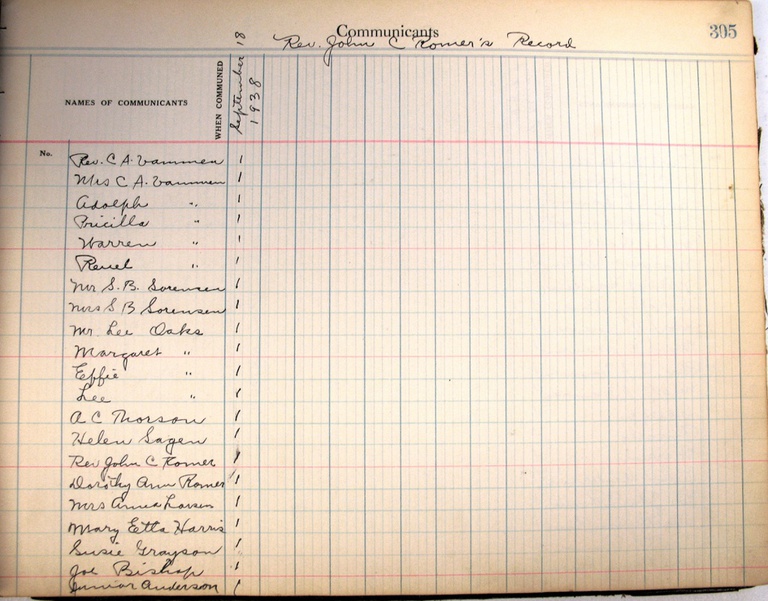 Communicants 305
Rev. John C Romer's Record
NAMES OF COMMUNICANTS
WHEN COMMUNED
September 18
1938
No.
Rev. C A. Vammen 1
Mrs C A. Vammen 1
Adolph " 1
Pricilla " 1
Warren " 1
Reuel " 1
Mr S. B. Sorensen 1
Mrs S B Sorensen 1
Mr. Lee Oaks 1
Margaret " 1
Effie " 1
Lee " 1
A C Thorson 1
Helen Sagen 1
Rev John C Romer 1
Dorothy Ann Romer 1
Mrs Anna Larsen 1
Mary Etta Harris 1
Susie Grayson 1
Joe Bishop 1
Junior Anderson 1